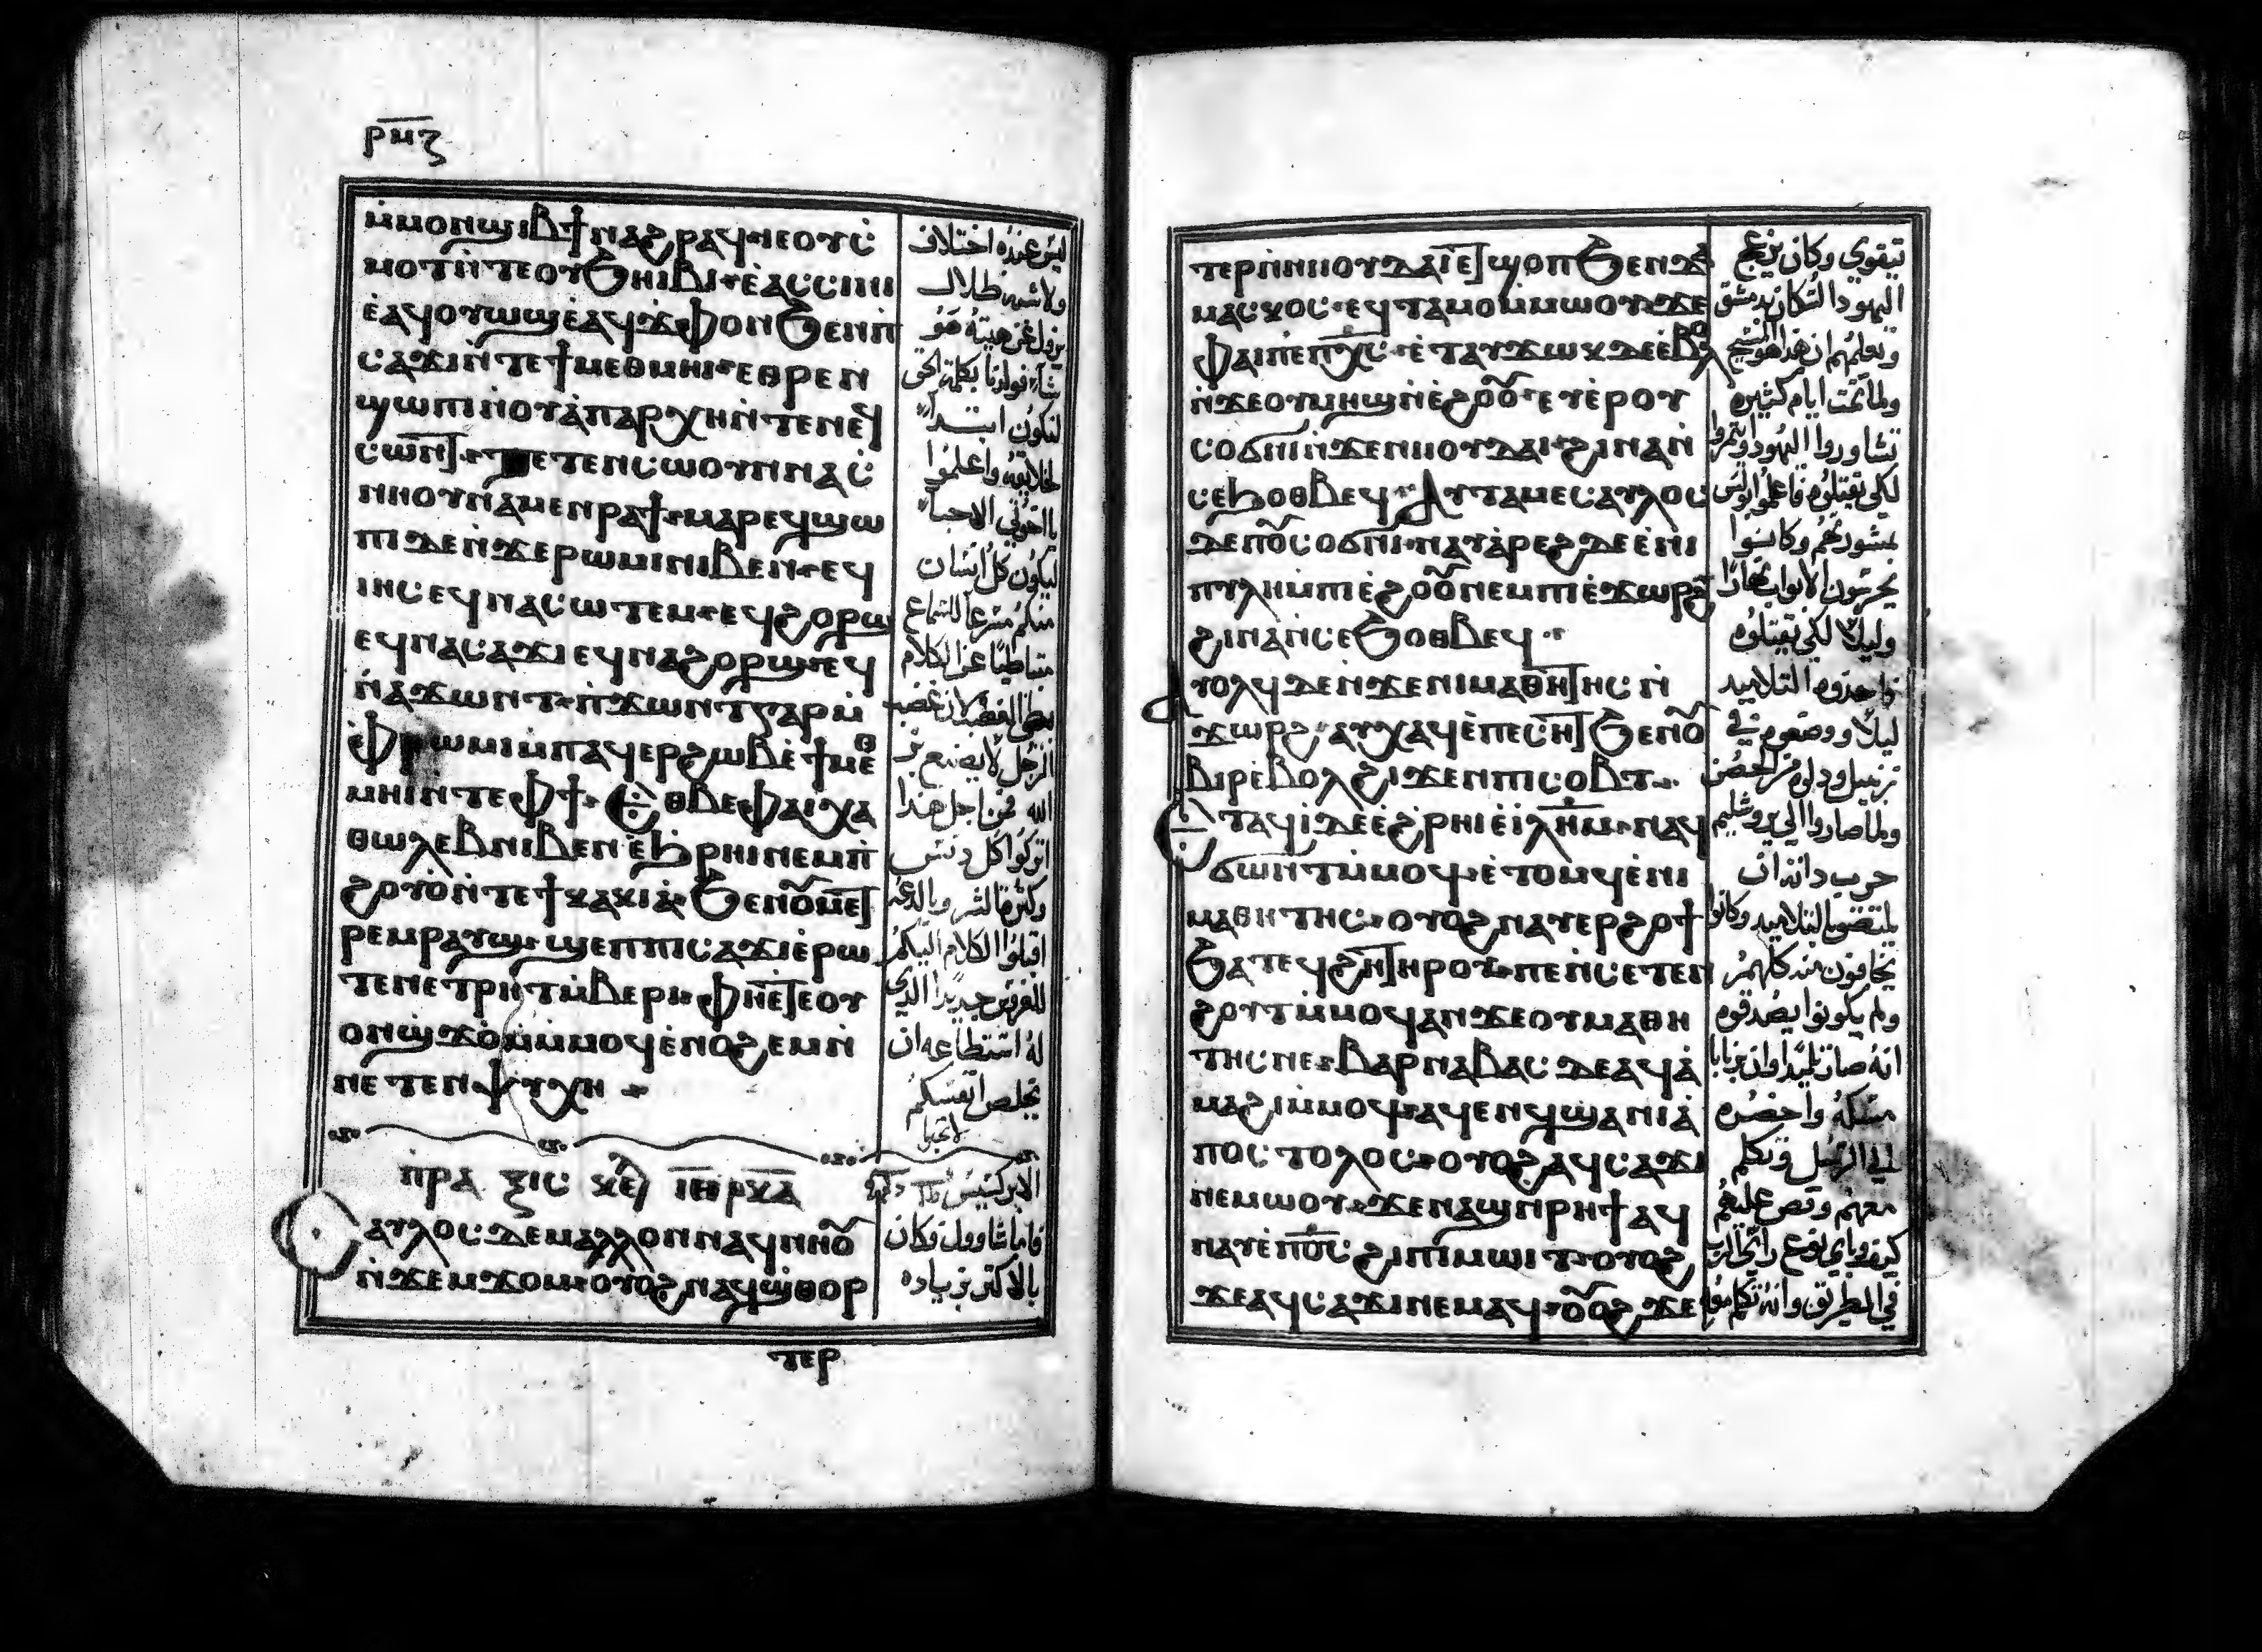 ⲣⲙⲍ
ⲙ̀ⲙⲟⲛϣⲓⲃϯⲛⲁϩⲣⲁϥ·ⲓⲉⲟⲩⲥ̀
ⲙⲟⲧⲛ̀ⲧⲉⲟⲩϧⲏⲓⲃⲓ·ⲉ̀ⲁⲥⲥⲓⲛⲓ
ⲉ̀ⲁϥⲟⲩⲱϣⲉ̀ⲁϥϫⲫⲟⲛϧⲉⲛⲡ̀
ⲥⲁϫⲓⲛ̀ⲧⲉϯⲙⲉⲑⲙⲏⲓ·ⲉⲑⲣⲉⲛ
ϣⲱⲡⲓⲛ̀ⲟⲩⲁ̀ⲡⲁⲣⲭⲏⲛ̀ⲧⲉⲛⲉϥ
ⲥⲱⲛ̅ⲧ·ⲧⲉⲧⲉⲛⲥⲱⲟⲩⲛⲛⲁⲥ̀
ⲛⲏⲟⲩⲛⲁⲙⲉⲛⲣⲁϯ·ⲙⲁⲣⲉϥϣⲱ
ⲡⲓⲇⲉⲛ̀ϫⲉⲣⲱⲙⲓⲛⲓⲃⲉⲛ·ⲉϥ
ⲓⲏⲥⲉϥⲛⲁⲥⲱⲧⲉⲙ·ⲉϥϩⲟⲣϣ
ⲉϥⲛⲁⲥⲁϫⲓⲉϥⲛⲁϩⲟⲣϣⲉϥ
ⲛ̀ⲁϫⲱⲛⲧ·ⲡ̀ϫⲱⲛⲧⲅⲁⲣⲙ̀
ⲫⲣⲱⲙⲓⲙ̀ⲡⲁϥⲉⲣϩⲱⲃⲉ̀ϯⲙⲉⲑ
ⲙⲏⲓⲛ̀ⲧⲉⲫϯ·ⲉⲑⲃⲉⲫⲁⲓⲭⲁ
ⲑⲱⲗⲉⲃⲛⲓⲃⲉⲛⲉ̀ϧⲣⲏⲓⲛⲉⲙⲡ̀
ϩⲟⲩⲟ̀ⲛ̀ⲧⲉϯⲕⲁⲕⲓⲁ̀·ϧⲉⲛⲟⲩⲙⲉⲧ
ⲣⲉⲙⲣⲁⲩϣ·ϣⲉⲡⲡⲓⲥⲁϫⲓⲉ̀ⲣⲱ
ⲧⲉⲛⲉⲧⲣⲏⲧⲙ̀ⲃⲉⲣⲓ·ⲫⲏⲉ̅ⲧⲉⲟⲩ
ⲟⲛϣϫⲟⲙⲙ̀ⲙⲟϥⲉ̀ⲛⲟϩⲉⲙⲛ̀
ⲛⲉⲧⲉⲛⲯⲩⲭⲏ
ليس عنده اختلاف
ولا شبه ظلال
يزول عن هيته هو
شآء فولدنا بكلمة الحق
لنكون ابتدآ
لخلايقه واعلموا
يا اخوتي الاحبآ
ليكون كل انسان
منكم مسرعا للسماع
متباطيا عن الكلام
الرجل لا يصنع بر
الله فمن اجل هذا
اتركوا كل دنس
وكثرة الشر وبالدعه
اقبلوا الكلام اليكم
له استطاعه ان
يخلص انفسكم
ⲡ̀ⲣⲁⲝⲓⲥ ⲕⲉ
الابركسيس
ⲁⲩⲗⲟⲥⲇⲉⲙⲁⲗⲗⲟⲛⲛⲁϥⲛⲏⲟⲩ
ⲛ̀ϫⲉⲙϫⲟⲙ·ⲟⲩⲟϩⲛⲁϥϣ̀ⲑⲟⲣ
فاما شاوول فكان
بالاكثر بزياده
ⲧⲉⲣ
ⲧⲉⲣⲛ̀ⲛⲓⲓⲟⲩⲇⲁⲓⲉ̅ⲧϣⲟⲡϧⲉⲛⲇⲁ
ⲙⲁⲥⲕⲟⲥ·ⲉϥⲧⲁⲙⲟⲙ̀ⲙⲱⲟⲩϫⲉ
ⲫⲁⲓⲡⲉⲡⲭ̅ⲥ·ⲉ̀ⲧⲁⲩϫⲱⲕⲇⲉⲉ̀ⲃⲟⲗ
ⲛ̀ϫⲉⲟⲩⲙⲏϣⲛ̀ⲉ̀ϩⲟⲟⲩ·ⲉⲩⲉⲣⲟⲩ
ⲥⲟϭⲛⲓⲛ̀ϫⲉⲛⲓⲓⲟⲩⲇⲁⲓ·ϩⲓⲛⲁⲛ̀
ⲥⲉϧⲟⲑⲃⲉϥ·ⲁⲩⲧⲁⲙⲉⲥⲁⲩⲗⲟⲥ
ⲇⲉⲡⲟⲩⲥⲟϭⲛⲓ·ⲛⲁⲩⲁ̀ⲣⲉϩⲇⲉⲉ̀ⲛⲓ
ⲡⲩⲗⲏⲙ̀ⲡⲓⲉ̀ϩⲟⲟⲩⲛⲉⲙⲡⲓⲉ̀ϫⲱⲣϩ
ϩⲓⲛⲁⲛ̀ⲥⲉϧⲟⲑⲃⲉϥ
ⲁⲩⲟⲗϥⲇⲉⲛ̀ϫⲉⲛⲓⲙⲁⲑⲏ̅ⲧⲏⲥⲛ̀
ϫⲱⲣϩ·ⲁⲩⲭⲁϥⲉ̀ⲡⲉⲥⲏ̅ⲧϧⲉⲛⲟⲩ
ⲃⲓⲣⲉ̀ⲃⲟⲗϩⲓϫⲉⲛⲡⲓⲥⲟⲃⲧ
ⲉⲧⲁϥⲓ̀ⲇⲉⲉ̀ϩⲣⲏⲓⲉ̀ⲓ̀ⲗⲏⲙ·ⲛⲁϥ
ϭⲱⲛⲧⲙ̀ⲙⲟϥ·ⲉ̀ⲧⲟⲙϥⲉ̀ⲛⲓ
ⲙⲁⲑⲏⲧⲏⲥ·ⲟⲩⲟϩⲛⲁⲩⲉⲣϩⲟϯ
ϧⲁⲧⲉϥϩⲏ̅ⲧⲏⲣⲟⲩ·ⲡⲉⲛ̀ⲥⲉⲧⲉⲛ
ϩⲟⲩⲧⲙ̀ⲙⲟϥⲁⲛϫⲉⲟⲩⲙⲁⲑⲏ
ⲧⲏⲥⲡⲉ·ⲃⲁⲣⲛⲁⲃⲁⲥⲇⲉⲁϥⲁ̀
ⲙⲁϩⲓⲙ̀ⲙⲟϥ·ⲁϥⲉⲛϥϣⲁⲛⲓⲁ̀
ⲡⲟⲥⲧⲟⲗⲟⲥ·ⲟⲩⲟϩⲁϥⲥⲁϫⲓ
ⲛⲉⲙⲱⲟⲩ·ϫⲉⲛⲁϣⲛ̀ⲣⲏϯⲁϥ
ⲛⲁⲩⲉ̀ⲡⲟ̅ⲥ̅ϩⲓⲡⲓⲙⲱⲓⲧ·ⲟⲩⲟϩ
ϫⲉⲁϥⲥⲁϫⲓⲛⲉⲙⲁϥ·ⲟⲩⲟϩϫⲉ
يتقوي وكان يزعج
اليهود السكان بدمشق
ويعلمهم ان هذا هو المسيح
ولما تمت ايام كثيره
تشاوروا اليهود وامروا
لكي يقتلوه فاعلموا بولس
بمشورتهم وكانوا
يحرسون الابواب نهارا
وليلا لكي يقتلوه
فاخذوه التلاميذ
ليلا ووضعوه في
زنبيل ودلوه من الحصن
ولما صاروا الي يروشليم
جرب ذاته ان
يلتصق بالتلاميذ وكانوا
يخافون منه كلهم
ولم يكونوا يصدقوه
انه صار تلميذا وان برنابا
مسكه واحضره
الي الرسل وتكلم
معهم وقص عليهم
في الطريق وانه تكلم معه